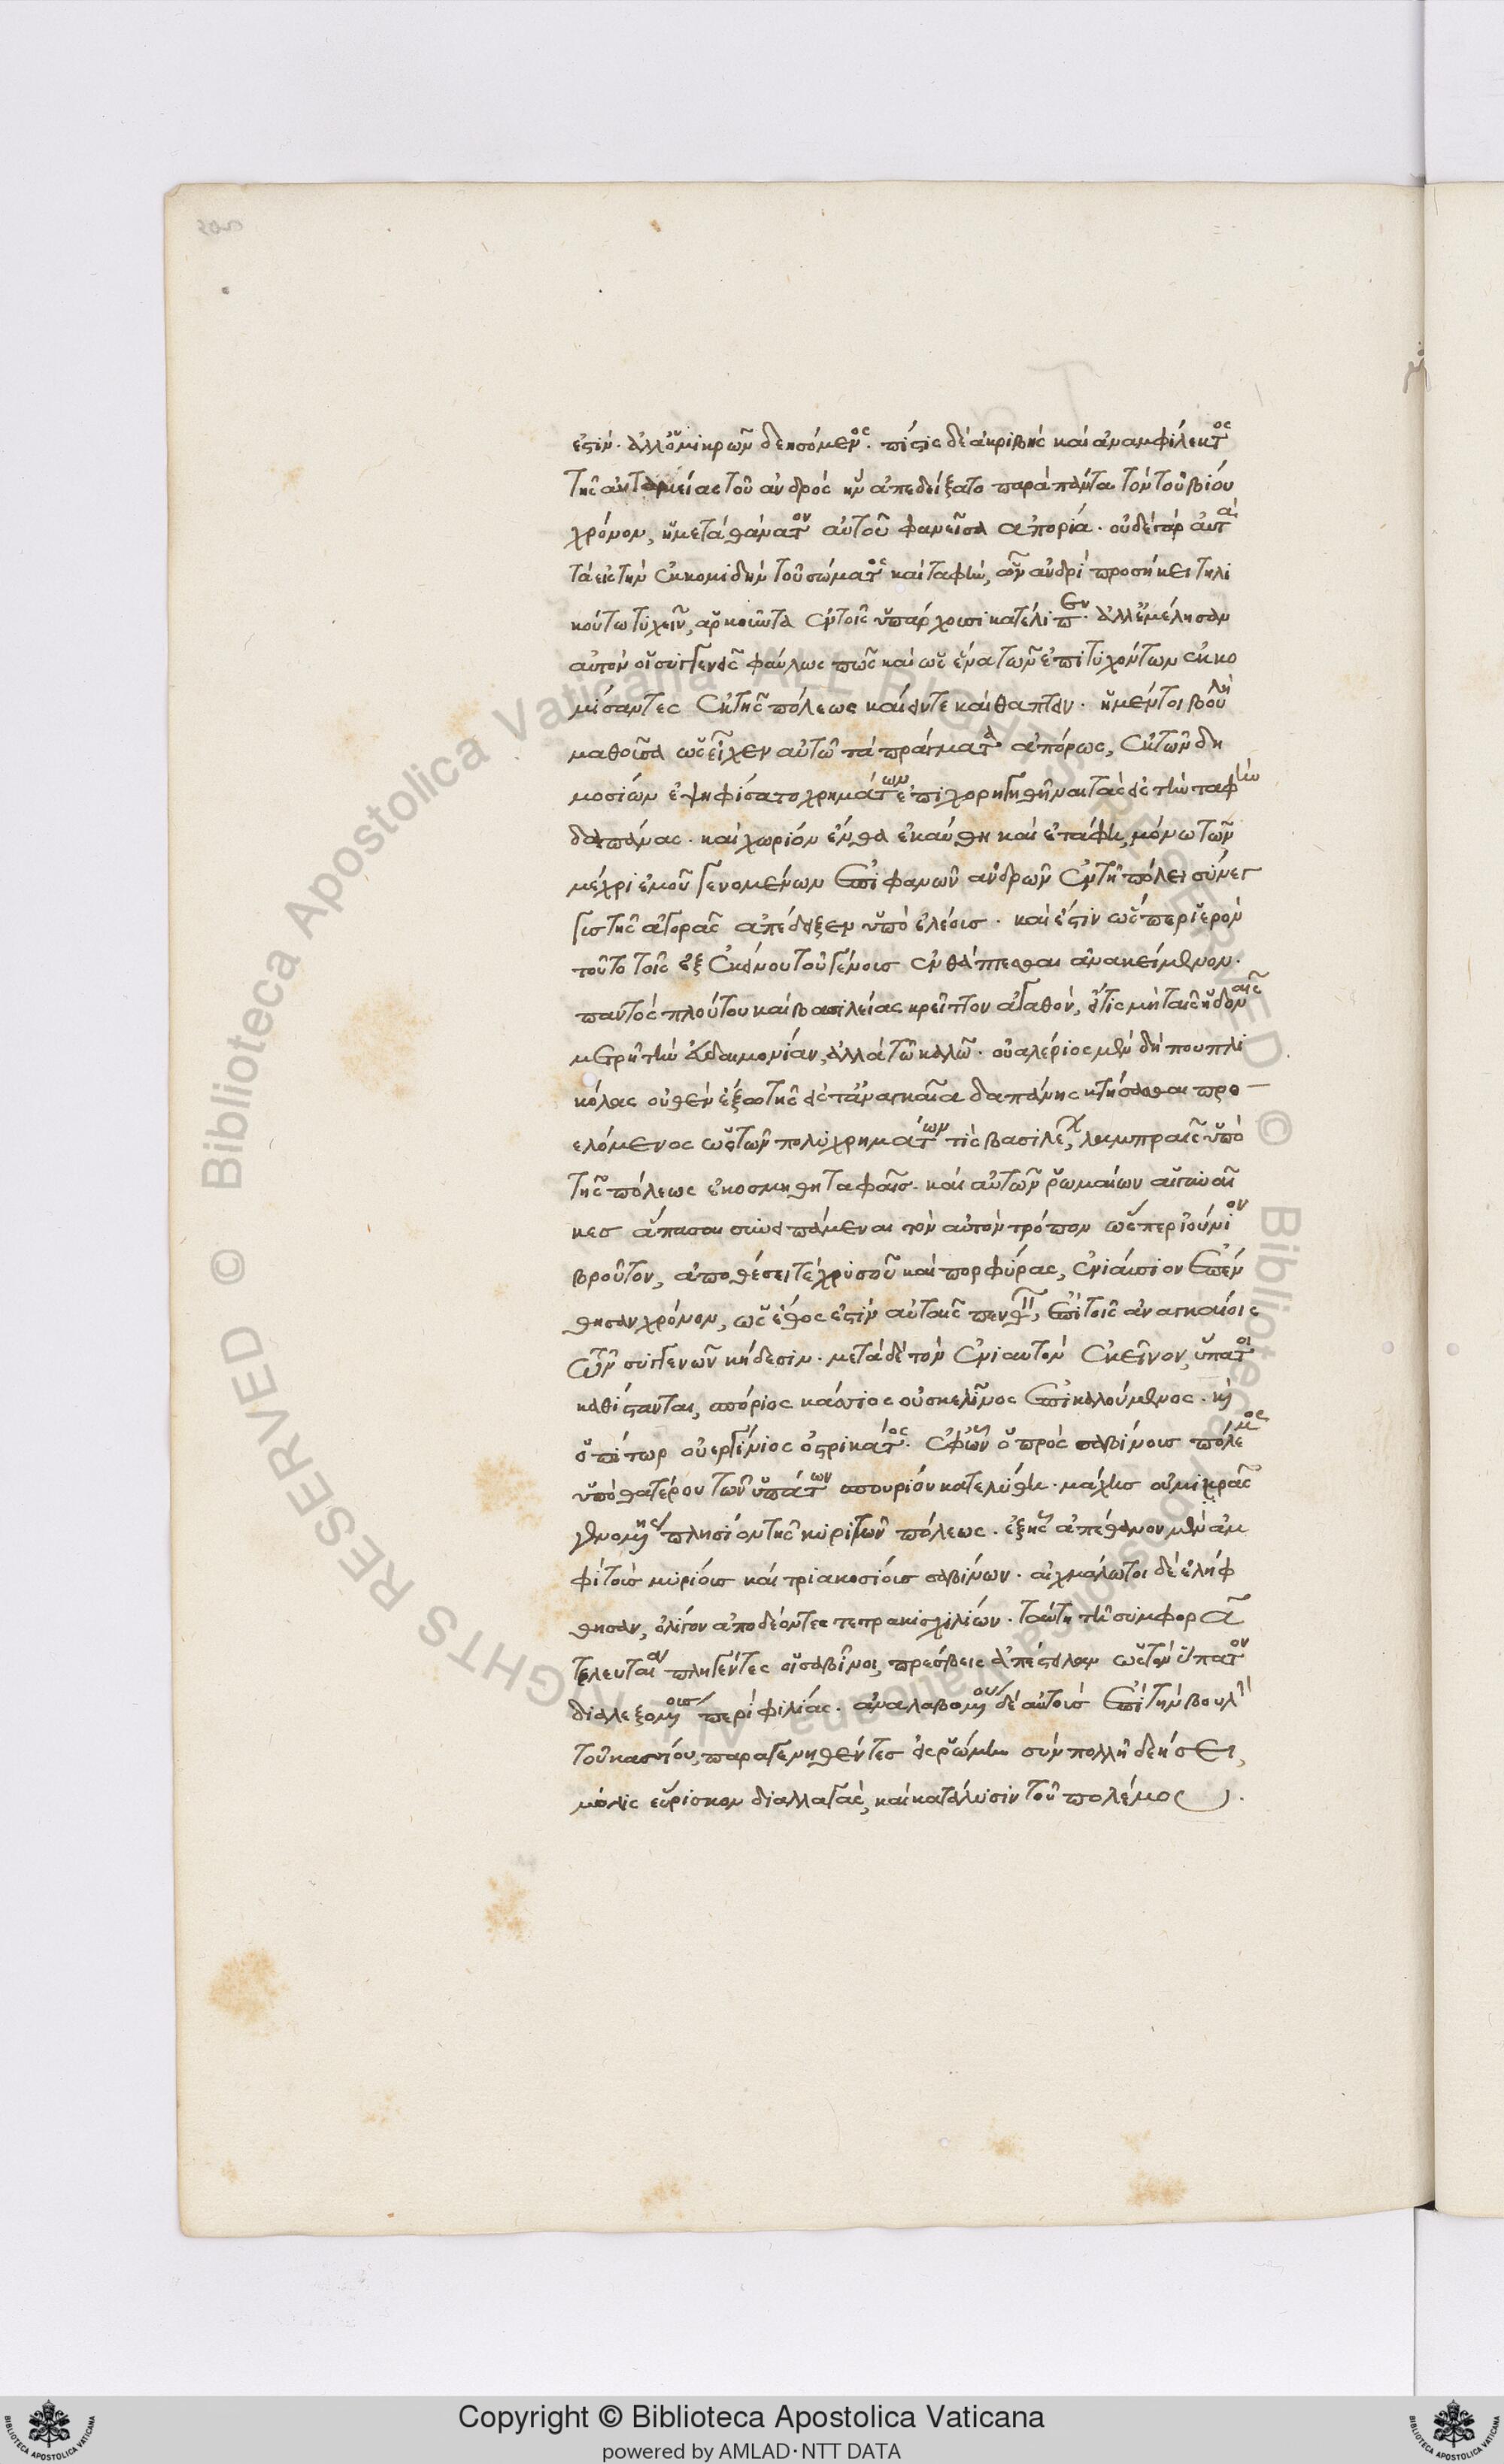 ἐστὶν. ἀλλ' ὁ μικρῶν δεησόμενος. πίστις δὲ ἀκριβὴς καὶ ἀναμφίλεκτος
τῆς αὐταρκείας τοῦ ἀνδρὸς ἣν ἀπεδείξατο παρὰ πάντα τὸν τοῦ βίου
χρόνον, ἡ μετὰ θάνατον αὐτοῦ φανεῖσα ἀπορία. οὐδὲ γὰρ αὐτὰ
τὰ εἰς τὴν ἐκκομιδὴν τοῦ σώματος καὶ ταφὴν, ὧν ἀνδρὶ προσήκει τηλι
κούτω τυχεῖν, ἀρκοῦντα ἐν τοῖς ὑπάρχουσι κατέλιπεν. ἀλλ' ἐμέλησαν
αὐτὸν οἱ συγγενεῖς φαύλως πῶς καὶ ὡς ἕνα τῶν ἐπιτυχόντων ἐκκο
μίσαντες ἐκ τῆς πόλεως καίειν τε καὶ θάπτειν. ἡ μέντοι βουλὴ
μαθοῦσα ὡς εἶχεν αὐτῶ τὰ πράγματα ἀπόρως, ἐκ τῶν δη
μοσίων ἐψηφίσατο χρημάτων ἐπιχορηγηθῆναι τὰς εἰς τὴν ταφὴν
δαπάνας. καὶ χωρίον ἔνθα ἐκαύθη καὶ ἐτάφη, μόνω τῶν
μέχρι ἐμοῦ γενομένων ἐπιφανῶν ἀνδρῶν ἐν τῆ πόλει σύνεγ
γυς τῆς ἀγορᾶς ἀπέδειξεν ὑπὸ ἐλέους. καὶ ἔστιν ὥσπερ ἱερὸν
τοῦτο τοῖς ἐξ ἐκείνου τοῦ γένους ἐνθάπτεσθαι ἀνακείμενον.
παντὸς πλούτου καὶ βασιλείας κρεῖττον ἀγαθὸν, εἴ τις μὴ ταῖς ἡδοναῖς
μετρῆ τὴν εὐδαιμονίαν, ἀλλὰ τῶ καλῶ. οὐαλέριος μὲν δὴ πουπλι
κόλας οὐθὲν ἔξω τῆς εἰς τἀναγκαῖα δαπάνης κτήσασθαι προ
ελόμενος ὡς τῶν πολυχρημάτων τὶς βασιλέων, λαμπραῖς ὑπὸ
τῆς πόλεως ἐκοσμήθη ταφαῖς. καὶ αὐτῶν ῥωμαίων αἱ γυναῖ
κες ἅπασαι συνειπάμεναι τὸν αὐτὸν τρόπον ὥσπερ ἰούνιον
βροῦτον, ἀποθέσει τὲ χρυσοῦ καὶ πορφύρας, ἐνιαύσιον ἐπέν
θησαν χρόνον, ὡς ἔθος ἐστὶν αὐταῖς πενθεῖν, ἐπὶ τοῖς ἀναγκαίοις
τῶν συγγενῶν κήδεσιν. μετὰ δὲ τὸν ἐνιαυτὸν ἐκεῖνον, ὕπατοι
καθίστανται, σπόριος κάσσιος οὐσκελῖνος ἐπικαλούμενος. καὶ
ὀπίτωρ οὐεργίνιος ὀτρικάτος. ἐφ' ὧν ὁ πρὸς σαβίνους πόλεμος
ὑπὸ θατέρου τῶν ὑπάτων σπουρίου κατελύθη. μάχης οὐ μικρᾶς
γενομένης πλησίον τῆς κυριτῶν πόλεως. ἐξ ἧς ἀπέθανον μὲν ἀμ
φὶ τοὺς μυρίους καὶ τριακοσίους σαβίνων. αἰχμάλωτοι δὲ ἐλήφ
θησαν, ὀλίγον ἀποδέοντες τετρακισχιλίων. ταύτη τῆ συμφορᾶ
τελευταία πληγέντες οἱ σαβῖνοι, πρέσβεις ἀπέστειλαν ὡς τὸν ὕπατον
διαλεξομένους περὶ φιλίας. ἀναβαλομένου δὲ αὐτοὺς ἐπὶ τὴν βουλὴν
τοῦ κασσίου, παραγενηθέντες εἰς ῥώμην σὺν πολλῆ δεήσει,
μόλις εὑρίσκον διαλλαγὰς, καὶ κατάλυσιν τοῦ πολέμου.
Copyright © Biblioteca Apostolica Vaticana
powered by AMLAD·NTT DATA